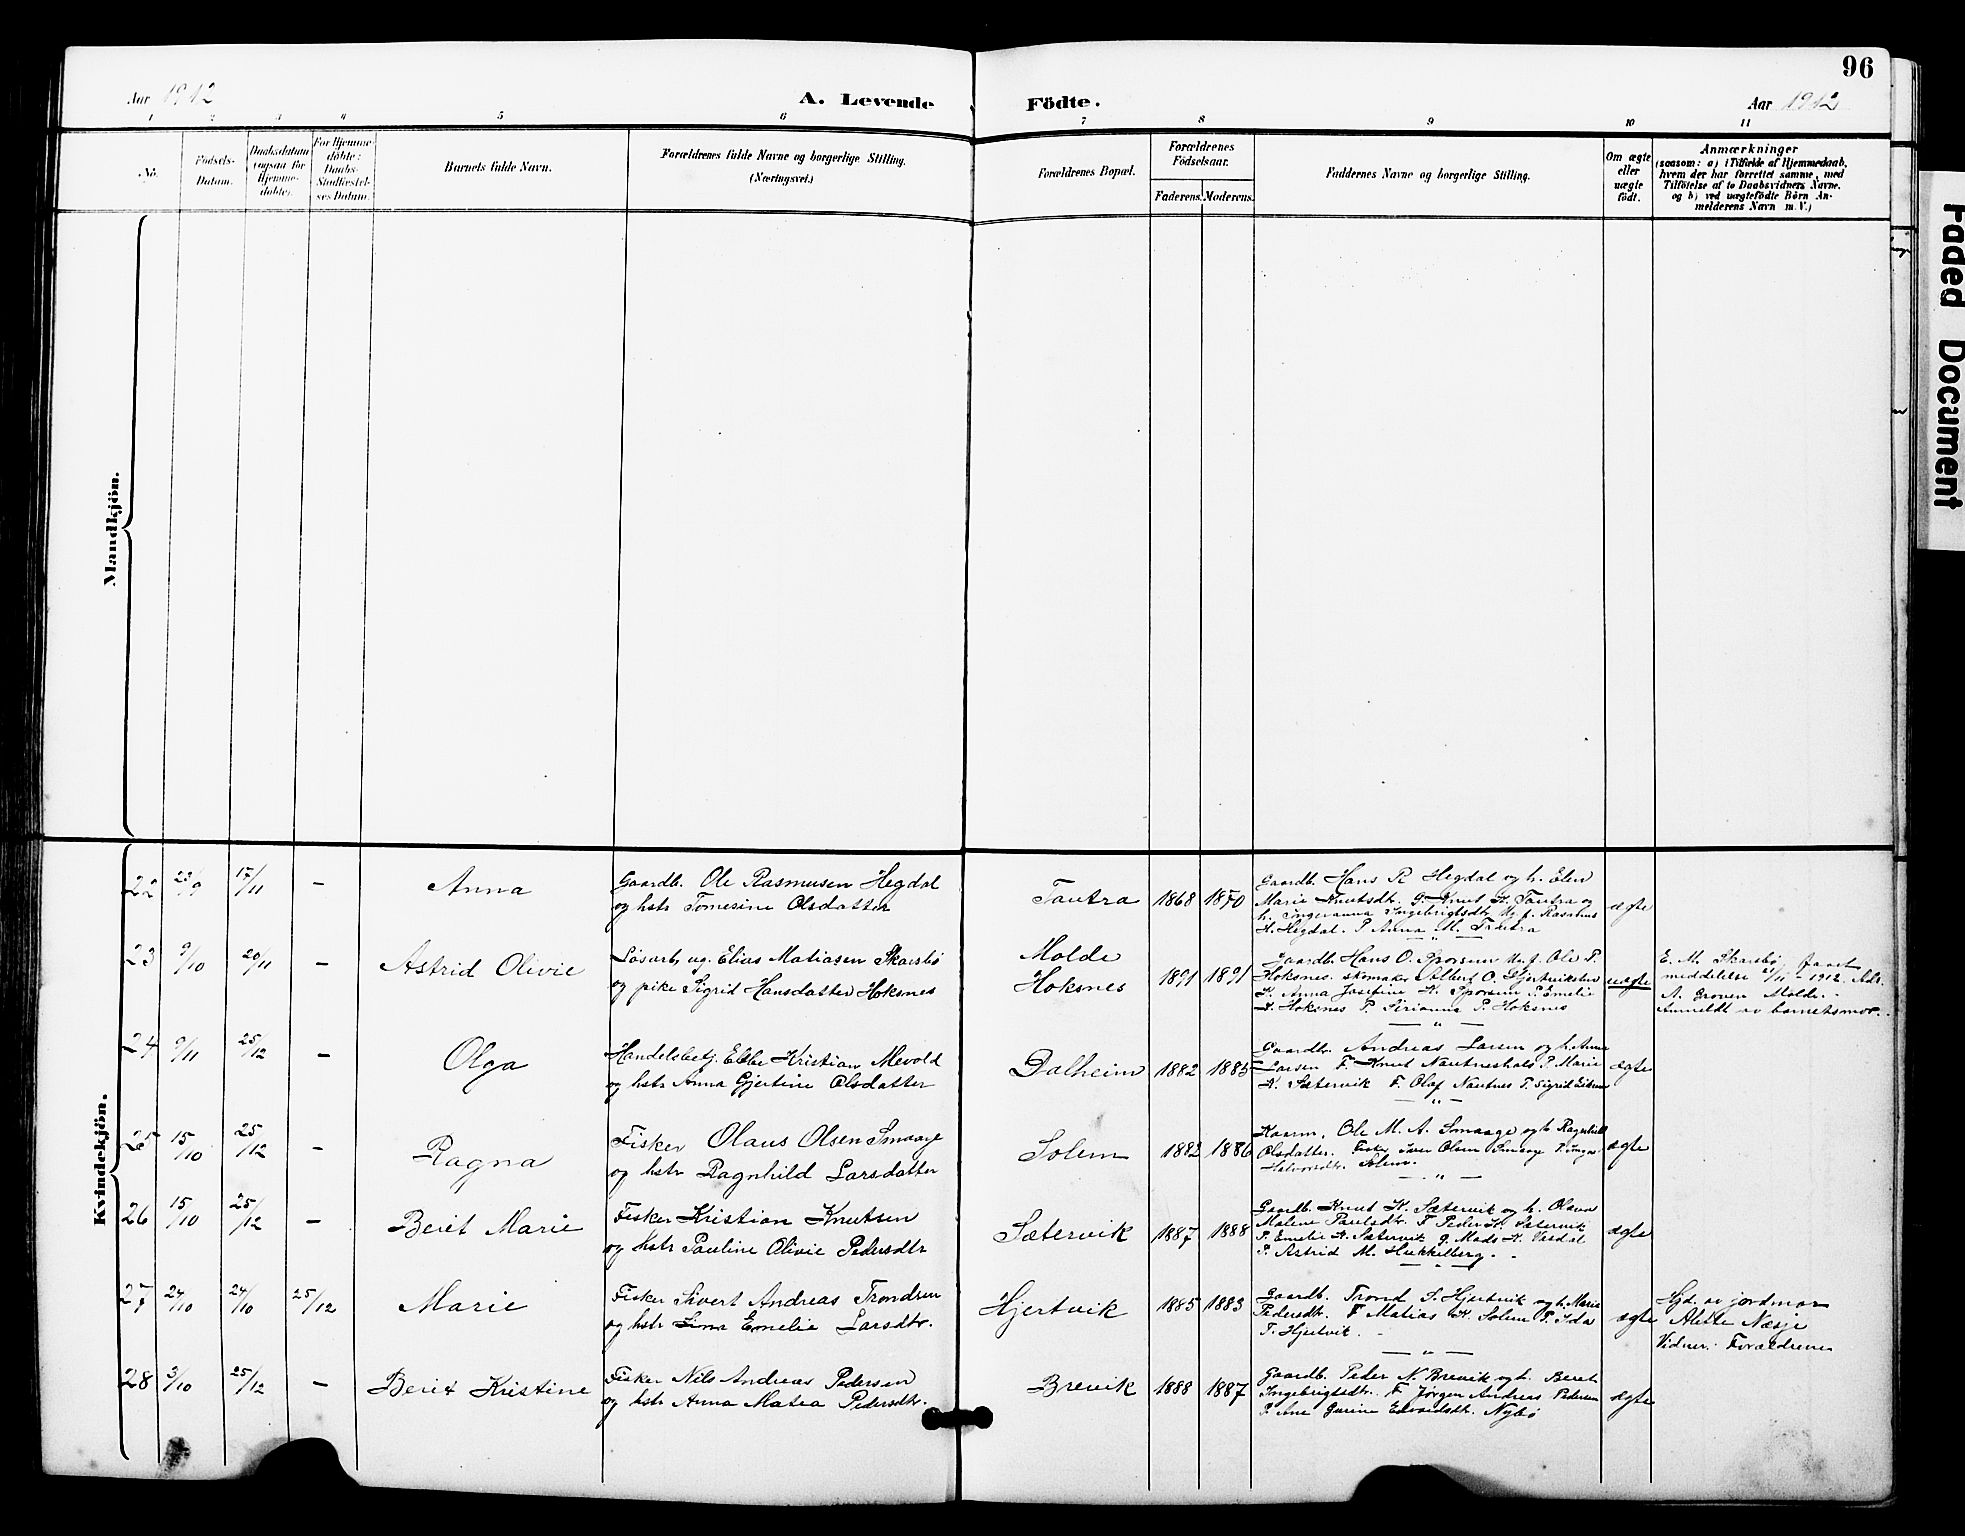 96
Aar 1912
A. Levende
Födte.
Aar 1912
1 2 3 4 5 6 7 8 9 10 11
No.
Födsels-
Datum.
Daabsdatum
(ogsaa for
Hjemme-
döbte).
For Hjemme-
döbte:
Daabs-
Stadfæstel-
ses Datum.
Barnets fulde Navn.
Forældrenes fulde Navne og borgerlige Stilling.
(Næringsvei.)
Forældrenes Bopæl.
Forældrenes
Födselsaar.
Faderens. Moderens.
Faddernes Navne og borgerlige Stilling.
Om ægte
eller
uægte
födt.
Anmærkninger
(saasom: a) i Tilfælde af Hjemmedaab,
hvem der har forrettet samme, med
Tilföielse af to Daabsvidners Navne.
og b) ved uægtefödte Börn An-
melderens Navn m. V.)
Mandkjön.
Kvindekjön.
22 23/9 17/11 –
Anna
Gaardb. Ole Rasmusen Hegdal
og hstr Tomesine Olsdatter
Tautra
1868 1870
Gaardb. Hans R Hegdal og h. Elen
Marie Knutsdtr. G. Knut K. Tautra og
h. Ingeranna Ingebrigtsdtr Ug. f. Rasmus
H. Hegdal. P Anna M. Tautra
ægte
23 9/10 20/11 –
Astrid Olivie
Løsarb. ug. Elias Matiasen Skarsbø
og pike Sigrid Hansdatter Hoksnes
Molde
Hoksnes
1891 1891
Gaardb Hans O. Sporsem Ug. f. Ole P.
Hoksnes. skomaker Albert O.
K. Anna Josefine K. Sporsem P. Emelie
H. Hoksnes P. Serianna P. Hoksnes
uægte
E. M. Skarsbø faaet
meddelelse 21/11 - 1912. Adr.
A. Groven Molde. -
Anmeldt av barnetsmor.
24 9/11 25/12 –
Olga
Handelsbetj. Ebbe Kristian Mevold
og hstr Anna Gjertine Olsdatter
Dalheim
1882 1885
Gaardb. Andreas Larsen og h. Anne
Larsen F. Knut Nautneshals P. Marie
K. Sætervik F. Olaf Nautnes P. Sigrid
ægte
25 15/10 25/12 –
Ragna
Fisker Olaus Olsen Smaage
og hstr Ragnhild Larsdatter
Solem
1882 1886
Kaarm. Ole M. A. Smaage og h. Ragnhild
Olsdatter. Fisker Iver Olsen Smaage P. Inga
Halvorsdtr. Solem.
ægte
26 15/10 25/12 –
Beret Marie
Fisker Kristian Knutsen
og hstr Pauline Olivie Pedersdtr
Sætervik
1887 1888
Gaardb. Knut K. Sætervik og h. Olava
Malene Paulsdtr. F Peder K. Sætervik
P. Emelie K. Sætervik G. Mads K. Vasdal
P. Astrid M. Hukkelberg.
ægte
27 24/10 24/10 25/12
Marie
Fisker Sivert Andreas Trondsen
og hstr Lina Emelie Larsdtr.
Hjertvik
1885 1883
Gaardb. Trond S. Hjertvik og h. Marie
Pedersdtr. F Matias K. Solem P. Ida
T. Hjertvik.
ægte
Hjd. av jordmor
Alette Næsje
Vidner: Forældrene
28 3/10 25/12 –
Berit Kristine
Fisker Nils Andreas Pedersen
og hstr Anna Matea Pedersdtr.
Brevik
1888 1887
Gaardb. Peder N. Brevik og h. Beret
Ingebrigtsdtr. F. Jørgen Andreas Pedersen
P. Ane Gurine Edvardsdtr. Nybø
ægte
Faded Document